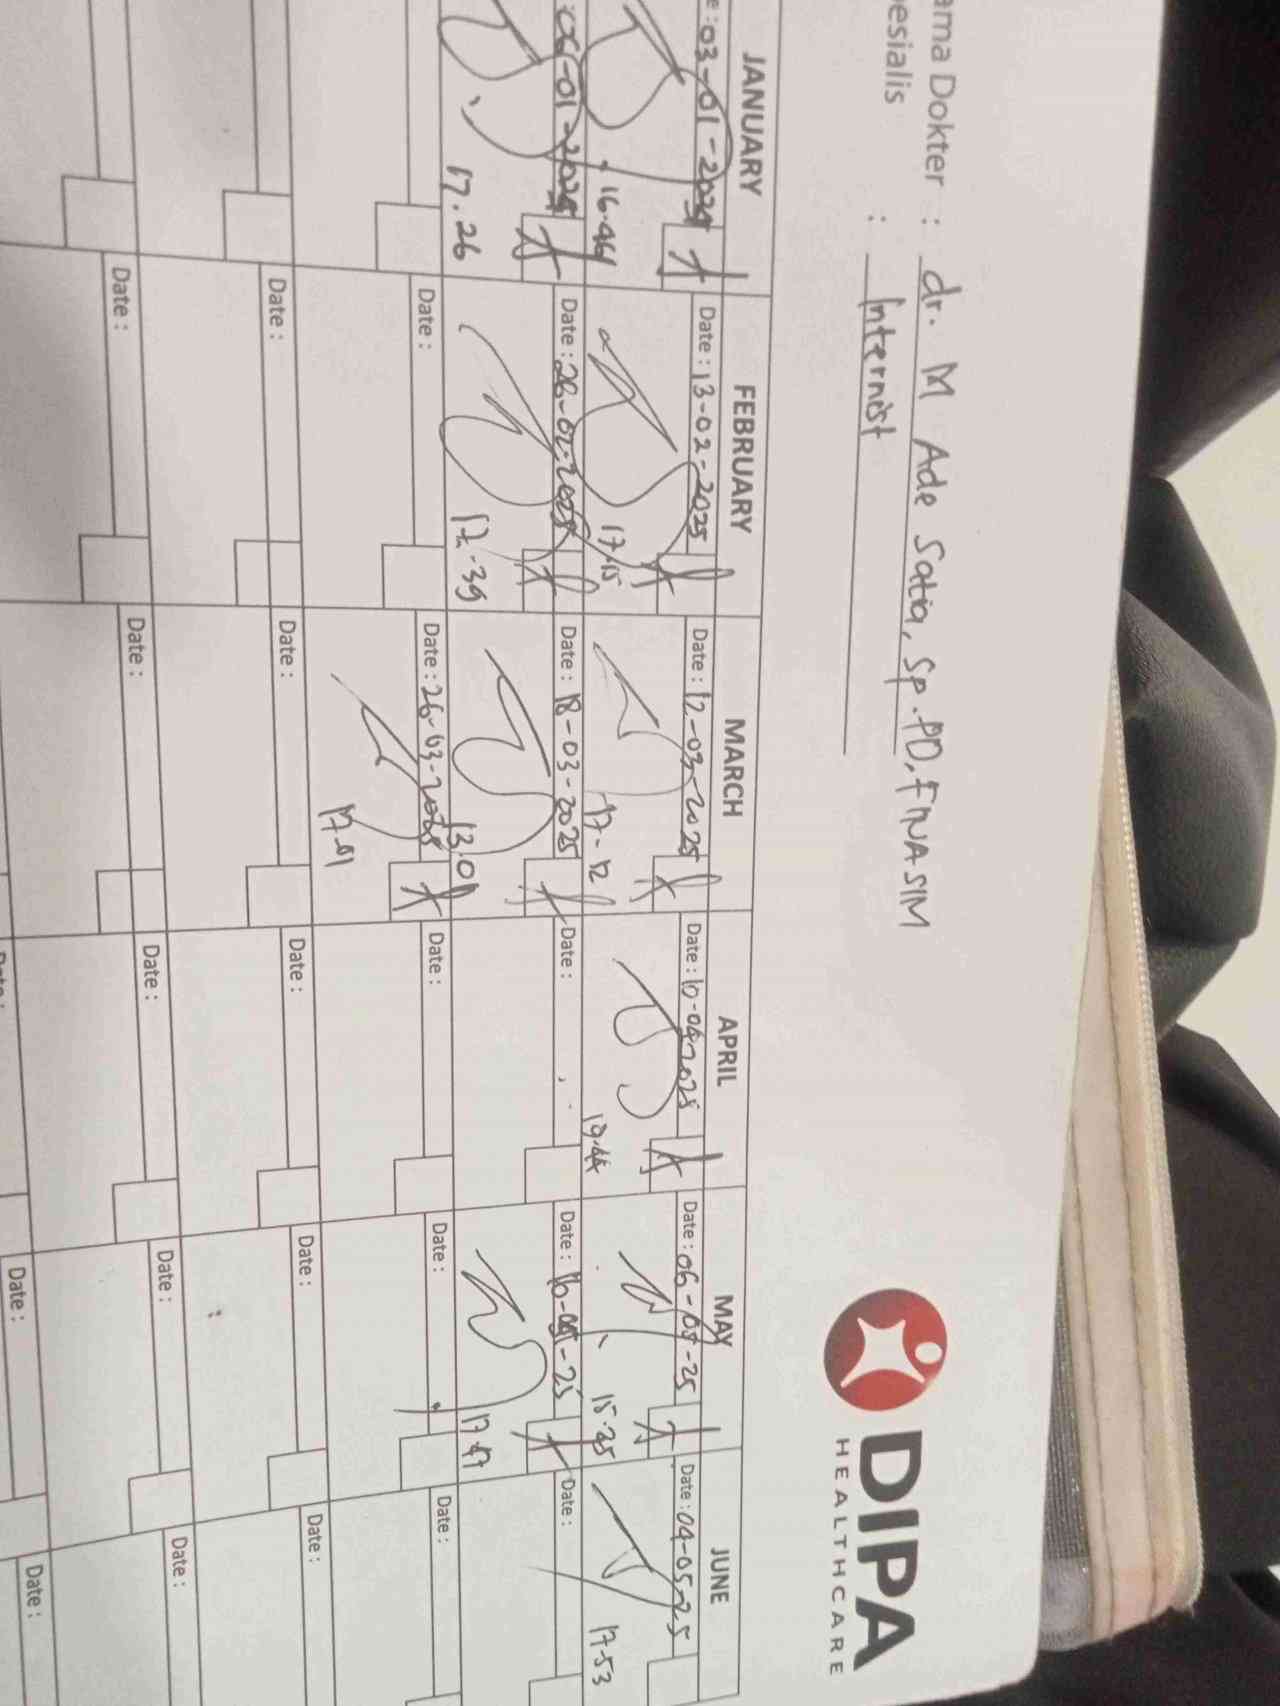 DIPA
HEALTHCARE
ama Dokter : dr. M Ade Satia, Sp.PD, FINASIM
esialis : Internist
JANUARY FEBRUARY MARCH APRIL MAY JUNE
e : 03-01-2025 Date : 13-02-2025 Date : 12-03-2025 Date : 10-04-2025 Date : 06-05-25 Date : 04-05-25
16.46 17.15 17-12 19.44 15.25 17.53
06-01-2025 Date : 26-02-2025 Date : 18-03-2025 Date : Date : 16-05-25 Date :
17.26 17.39 13.01 17.47
Date : Date : 26-03-2025 Date : Date : Date :
17.01
Date : Date : Date : Date : Date :
Date : Date : Date : Date : Date :
Date : Date :